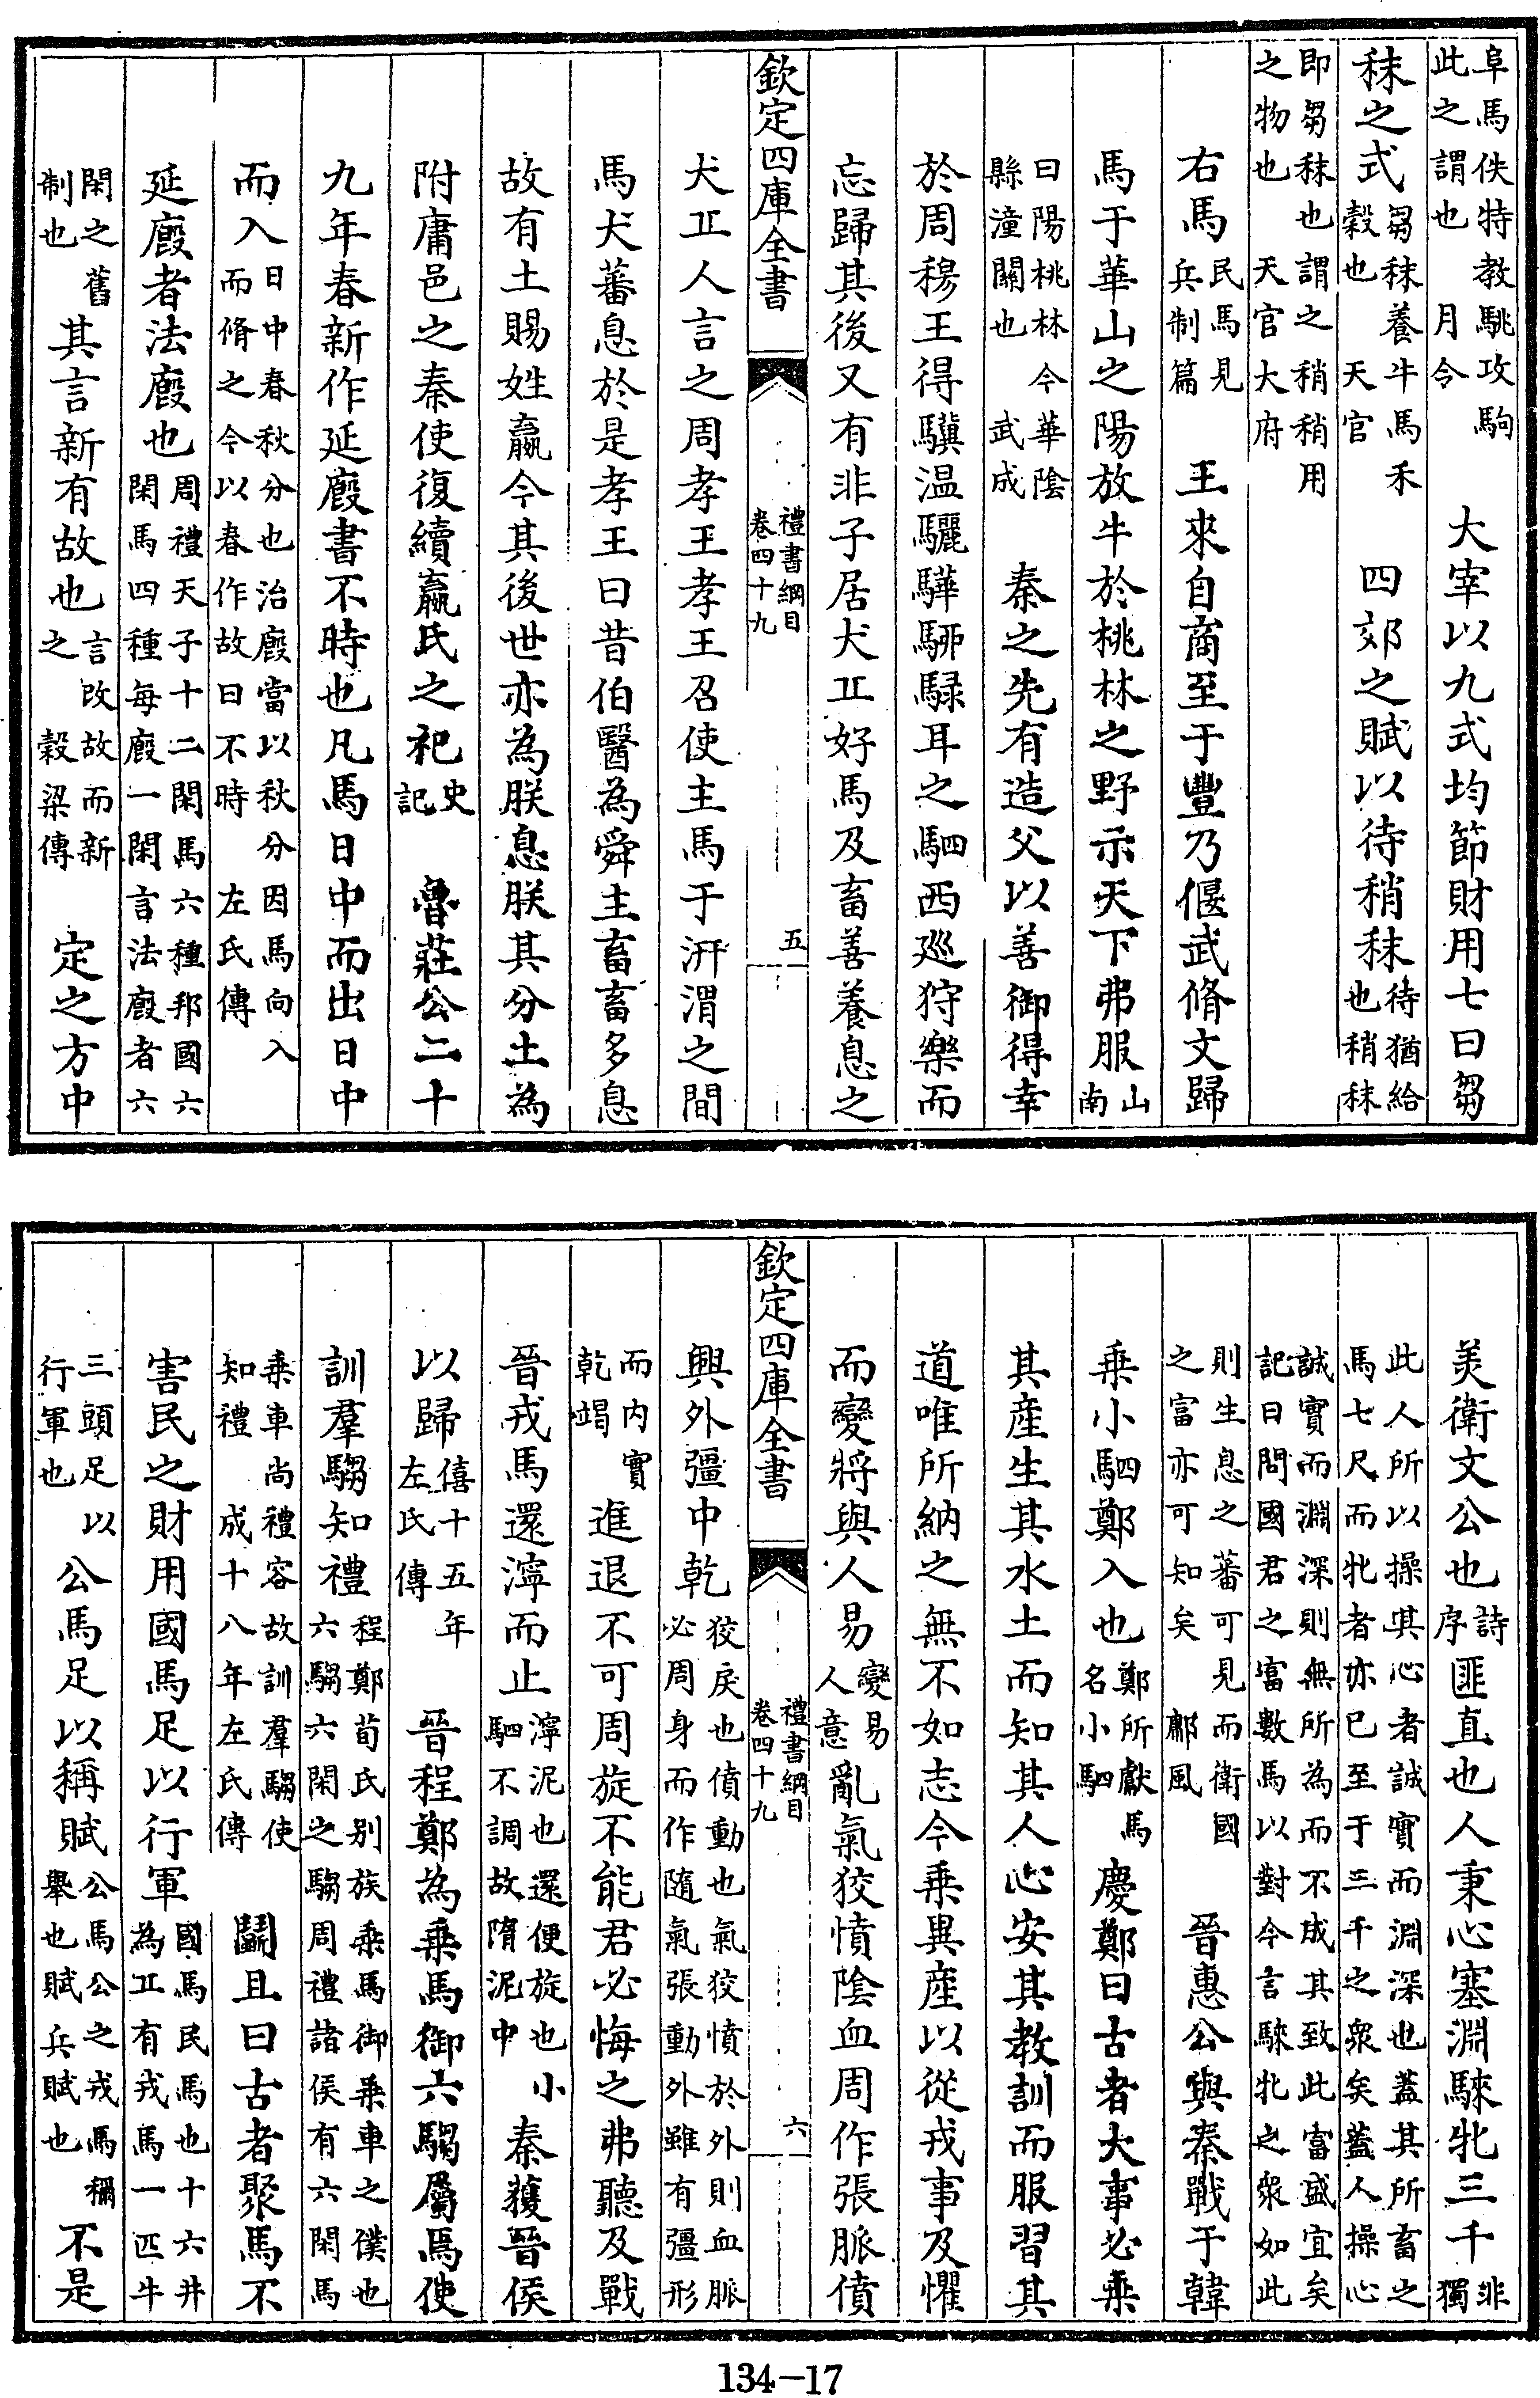 阜馬佚特教駣攻駒此之謂也　月令　大宰以九式均節財用七曰芻
秣之式芻秣養牛馬禾穀也　天官　四郊之賦以待稍秣待猶給也稍秣
即芻秣也謂之稍稍用之物也　天官大府
右馬民馬見兵制篇　王來自商至于豐乃偃武脩文歸
馬于華山之陽放牛於桃林之野示天下弗服山南
曰陽桃林今華陰縣潼關也　武成　秦之先有造父以善御得幸
於周穆王得驥温驪驊駵騄耳之駟西廵狩樂而
忘歸其後又有非子居犬丘好馬及畜善養息之
欽定四庫全書　禮書綱目卷四十九　五
犬丘人言之周孝王孝王召使主馬于汧渭之間
馬犬蕃息於是孝王曰昔伯翳為舜主畜畜多息
故有土賜姓嬴今其後世亦為朕息朕其分土為
附庸邑之秦使復續嬴氏之祀史記　魯莊公二十
九年春新作延廏書不時也凡馬日中而出日中
而入日中春秋分也治廏當以秋分因馬向入而脩之今以春作故曰不時　左氏傳
延廏者法廏也周禮天子十二閑馬六種邦國六閑馬四種每廏一閑言法廏者六
閑之舊制也　其言新有故也言改故而新之　穀梁傳　定之方中
美衛文公也詩序　匪直也人秉心塞淵騋牝三千非獨
此人所以操其心者誠實而淵深也蓋其所畜之馬七尺而牝者亦已至于三千之衆矣蓋人操心
誠實而淵深則無所為而不成其致此富盛宜矣記曰問國君之富數馬以對今言騋牝之衆如此
則生息之蕃可見而衛國之富亦可知矣　鄘風　晉惠公與秦戰于韓
乘小駟鄭入也鄭所獻馬名小駟　慶鄭曰古者大事必乘
其産生其水土而知其人心安其教訓而服習其
道唯所納之無不如志今乘異産以從戎事及懼
而變將與人易變易人意　亂氣狡憤陰血周作張脈僨
欽定四庫全書　禮書綱目卷四十九　六
興外彊中乾狡戾也僨動也氣狡憤於外則血脈必周身而作隨氣張動外雖有彊形
而内實乾竭　進退不可周旋不能君必悔之弗聽及戰
晉戎馬還濘而止濘泥也還便旋也小駟不調故隋泥中　秦獲晉侯
以歸僖十五年左氏傳　晉程鄭為乘馬御六騶屬焉使
訓羣騶知禮程鄭荀氏别族乘馬御乘車之僕也六騶六閑之騶周禮諸侯有六閑馬
乘車尚禮容故訓羣騶使知禮　成十八年左氏傳　鬭且曰古者聚馬不
害民之財用國馬足以行軍國馬民馬也十六井為丘有戎馬一匹牛
三頭足以行軍也　公馬足以稱賦公馬公之戎馬稱舉也賦兵賦也　不是
134-17